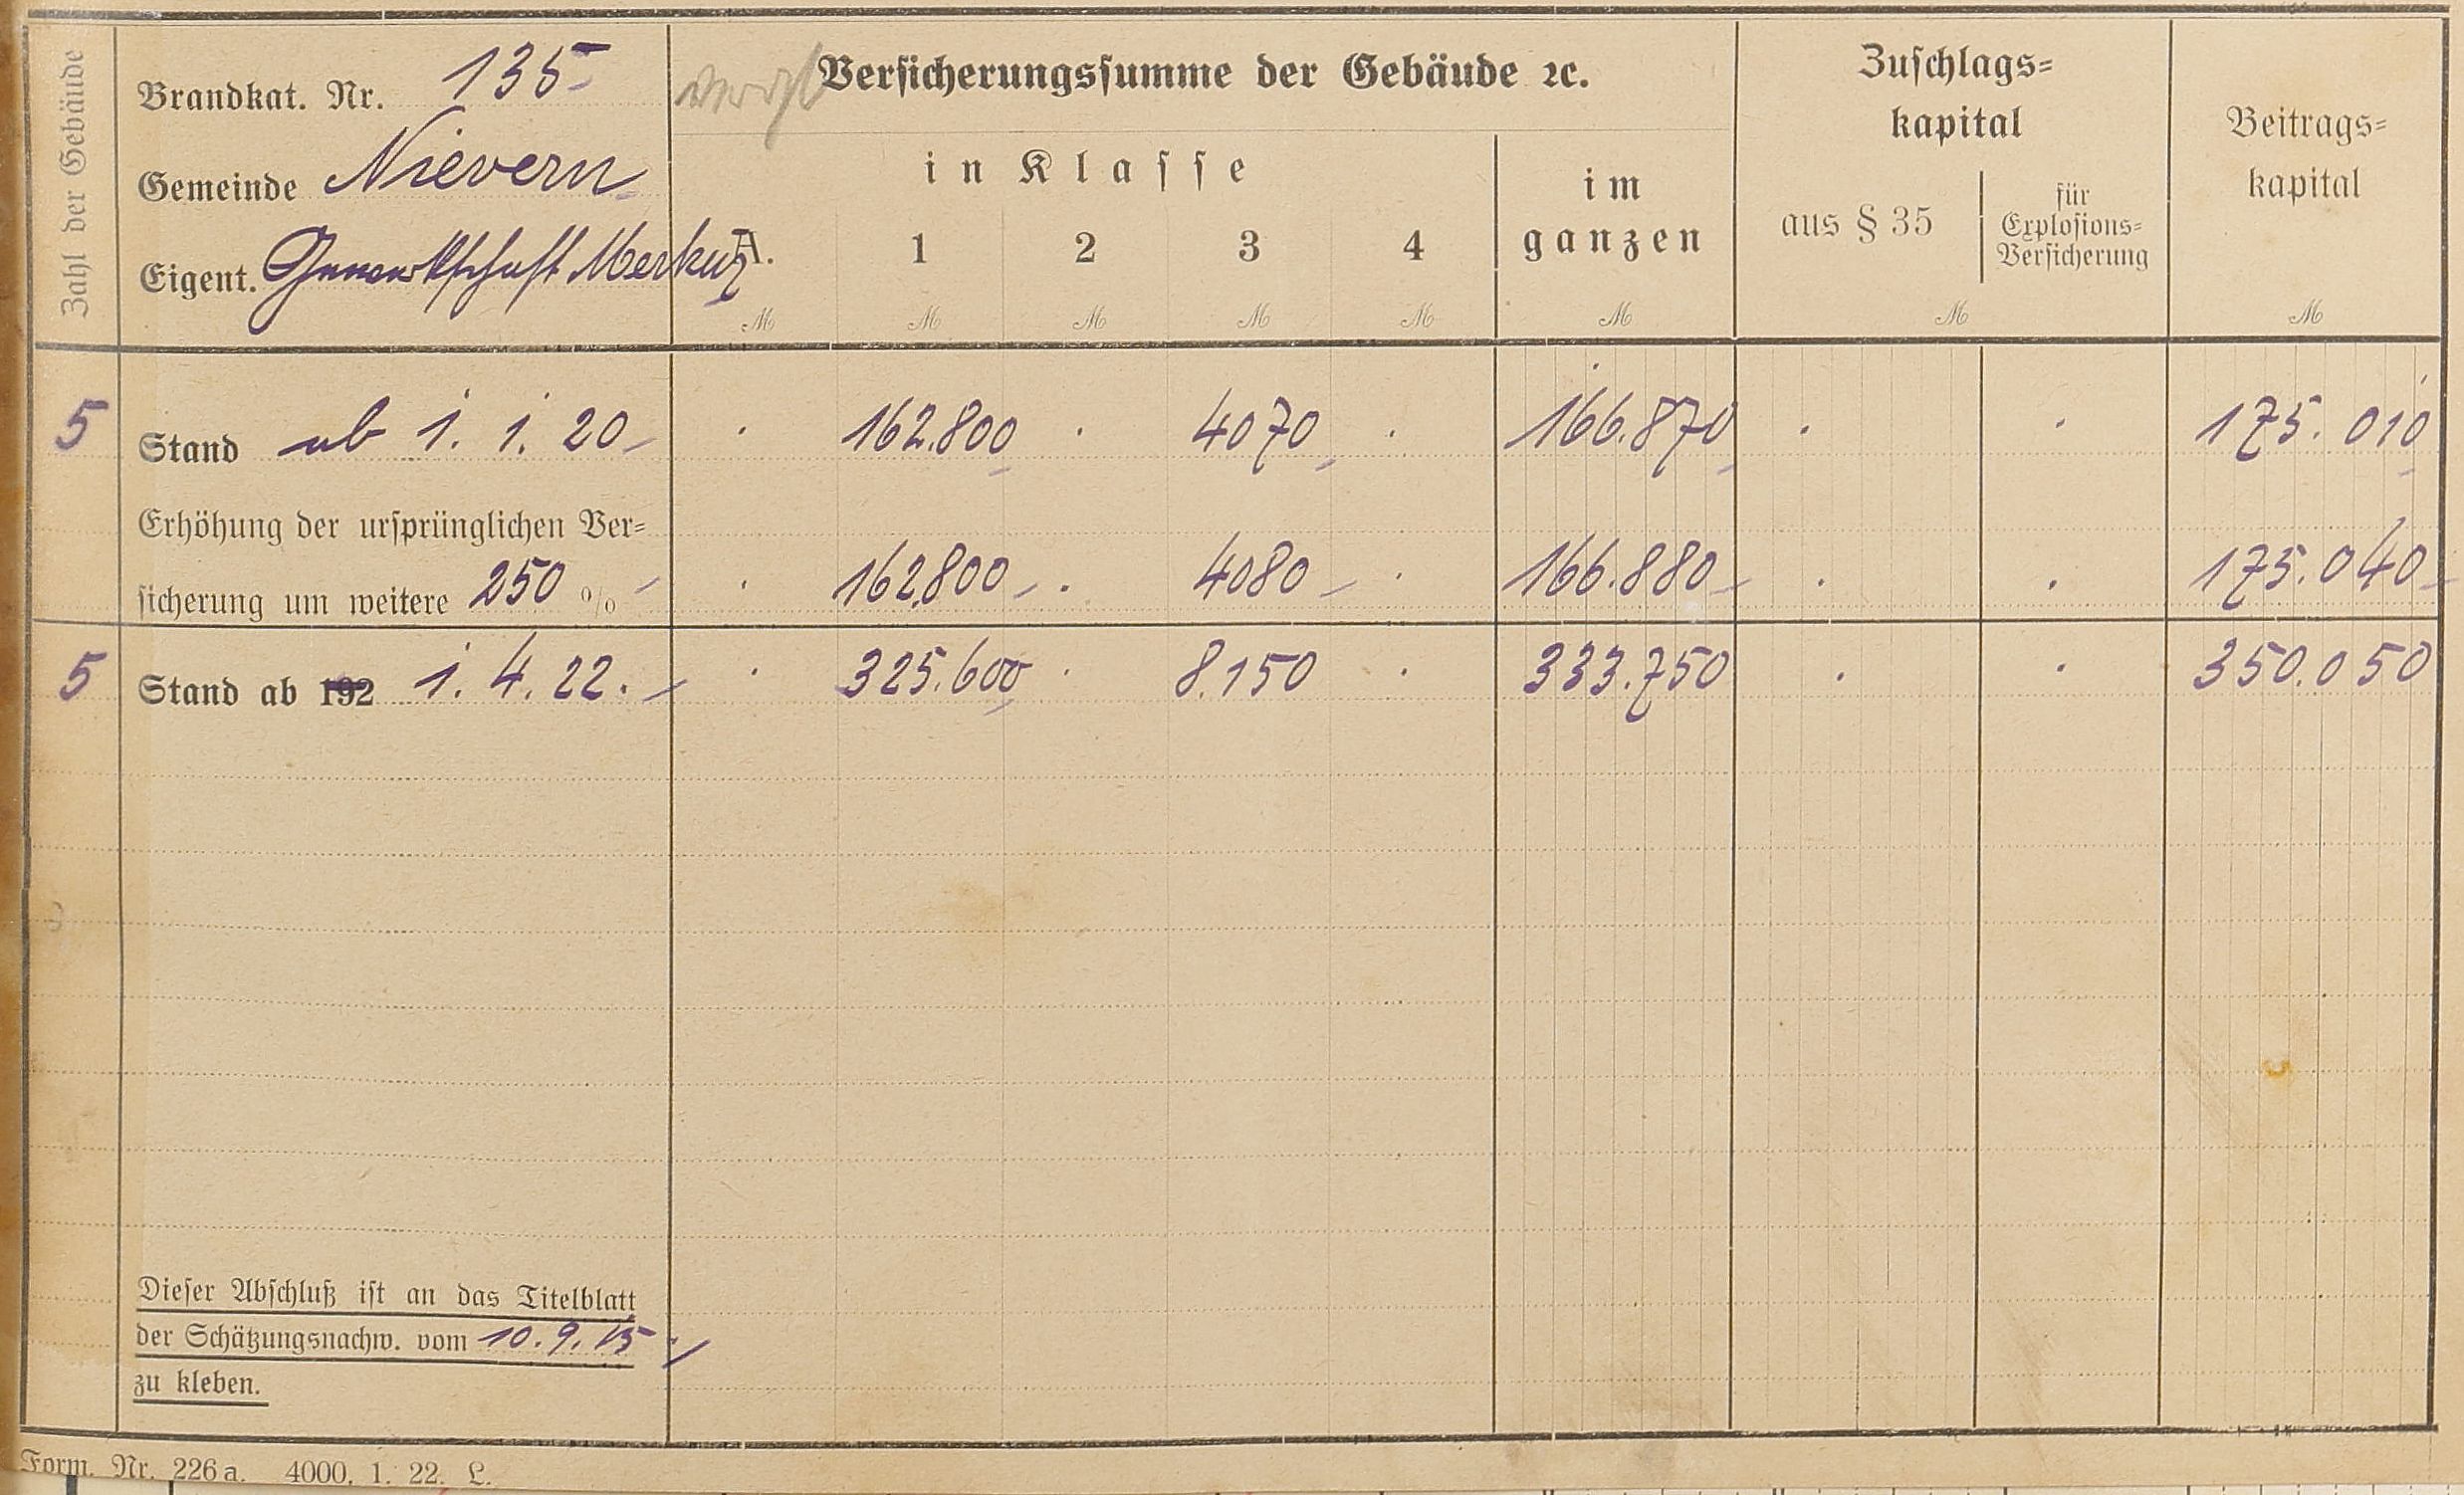 Zahl der Gebäude
Brandkat. Nr. 135
Gemeinde Nievern
Eigent. Gewerkschaft Merkur
Versicherungssumme der Gebäude ꝛc.
in Klasse
A. 1 2 3 4
im
ganzen
Zuschlags-
kapital
aus § 35
für
Explosions-
Versicherung
Beitrags-
kapital
M M M M M M M M
5 Stand ab 1. 1. 20 162.800 4070 166.870 175.010
Erhöhung der ursprünglichen Ver-
sicherung um weitere 250 % 162.800 4080 166.880 175.040
5 Stand ab 192 1. 4. 22. 325.600 8.150 333.750 350.050
Dieser Abschluß ist an das Titelblatt
der Schätzungsnachw. vom 10. 9. 15
zu kleben.
Form. Nr. 226 a. 4000. 1. 22. L.